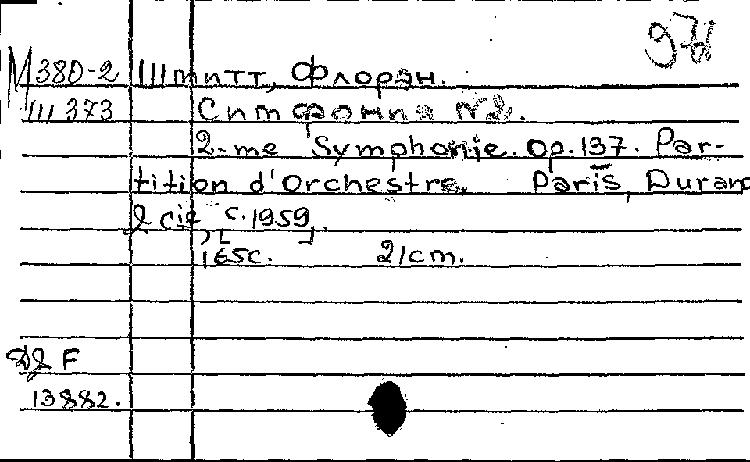 М380-2 Штитт, Флоран.
Ш373 Симфония №2.
2-me Symphonie. Op. 137. Par-
tition d'Orchestre. Paris, Durand
& cie, c. 1959.
165c. 21cm.
F
13882.